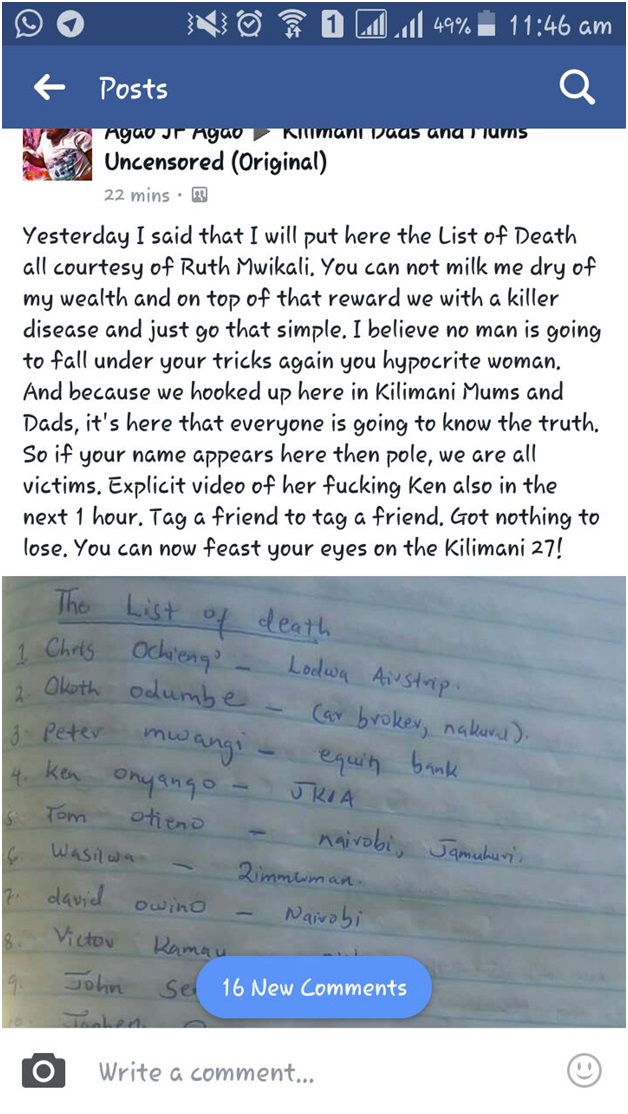 1 49% 11:46 am
Posts
Agao JF Agao ▶ Kilimani Dads and Mums
Uncensored (Original)
22 mins ·
Yesterday I said that I will put here the List of Death
all courtesy of Ruth Mwikali. You can not milk me dry of
my wealth and on top of that reward we with a killer
disease and just go that simple. I believe no man is going
to fall under your tricks again you hypocrite woman.
And because we hooked up here in Kilimani Mums and
Dads, it's here that everyone is going to know the truth.
So if your name appears here then pole, we are all
victims. Explicit video of her fucking Ken also in the
next 1 hour. Tag a friend to tag a friend. Got nothing to
lose. You can now feast your eyes on the Kilimani 27!
The List of death
1 Chris Ochieng' - Lodwa Airstrip.
2. Okoth odumbe - (car broker, nakuru).
3. Peter mwangi - equity bank
4. Ken onyango - JKIA
5 Tom otieno - nairobi, Jamuhuri.
6. Wasilwa - Zimmerman.
7. david owino - Nairobi
8. Victor Kamau
9. John Se
10.
16 New Comments
Write a comment...